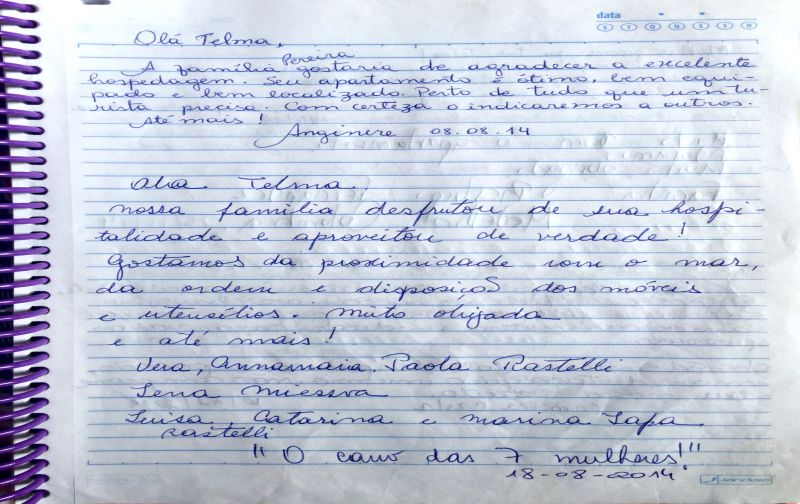 data
S T Q Q S S D
Olá Telma,
A família Pereira gostaria de agradecer a excelente
hospedagem. Seu apartamento é ótimo, bem equi-
pado e bem localizado. Perto de tudo que um tu-
rista precisa. Com certeza o indicaremos a outros.
Até mais!
08.08.14
Olá Telma
nossa família desfrutou de sua hospi-
talidade e aproveitou de verdade!
Gostamos da proximidade com o mar,
da ordem e disposiçoS dos móveis
e utensílios. Muito obrigada
e até mais!
Vera, Annamaria, Paola Rastelli
Lena
Luisa, Catarina e Marina Sapa
Rastelli
"O carro das 7 mulheres!!"
18-08-2014